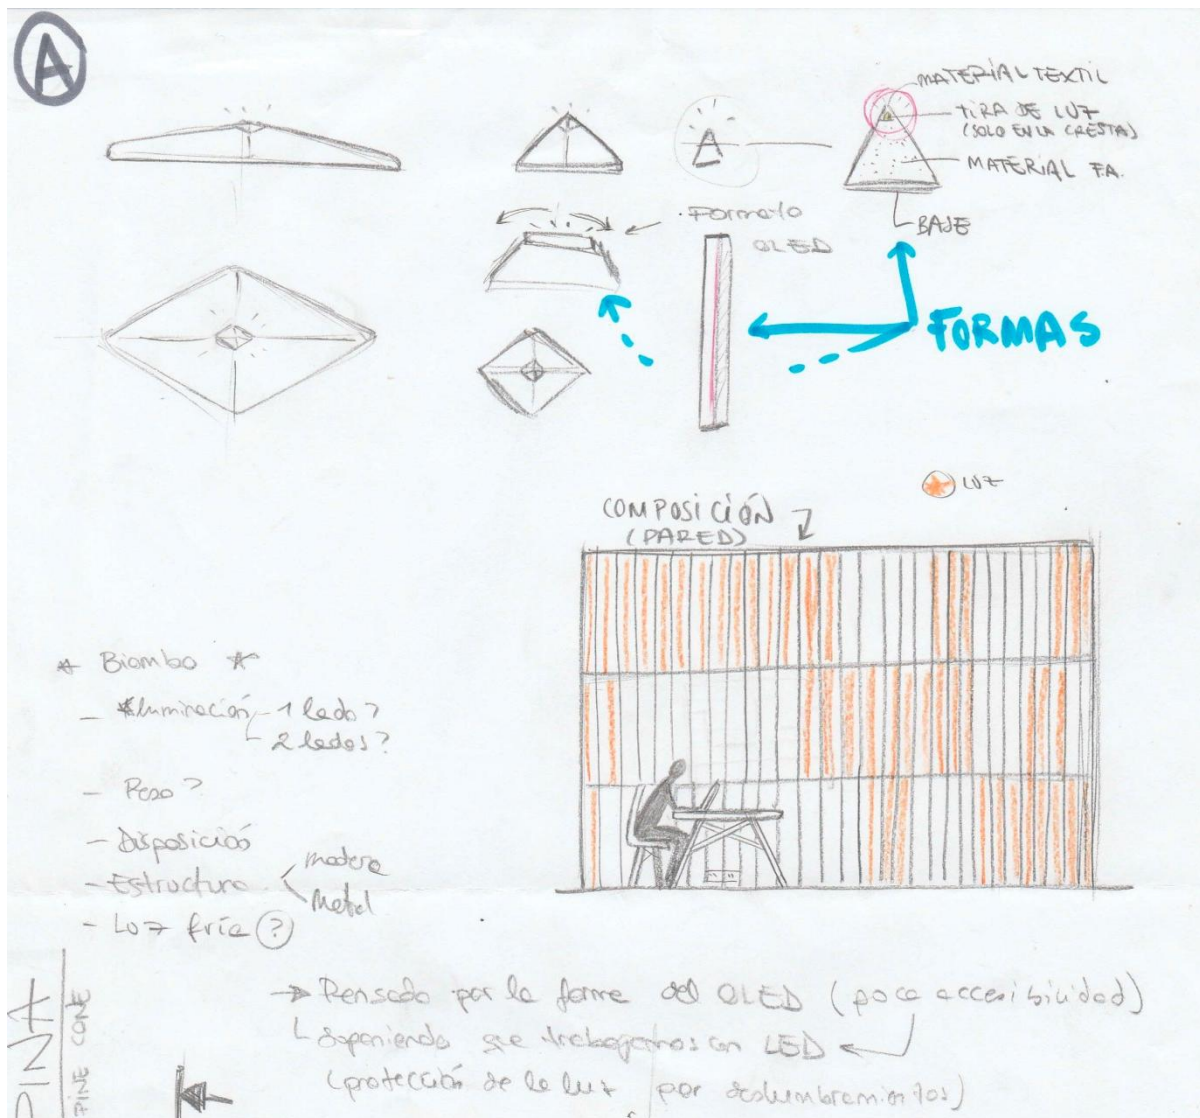 A
MATERIAL TEXTIL
TIRA DE LUZ
(SOLO EN LA CRESTA)
MATERIAL F.A.
BASE
Formato
OLED
FORMAS
LUZ
COMPOSICIÓN
(PARED)
* Biombo *
- Iluminación - 1 lado?
- 2 lados?
- Peso?
- Disposición
- Estructura
madera
Metal
- Luz fría (?)
→ Pensado por la forma del OLED (poca accesibilidad)
suponiendo que trabajamos con LED ←
(protección de la luz por deslumbramientos)
PINA
PINE CONE